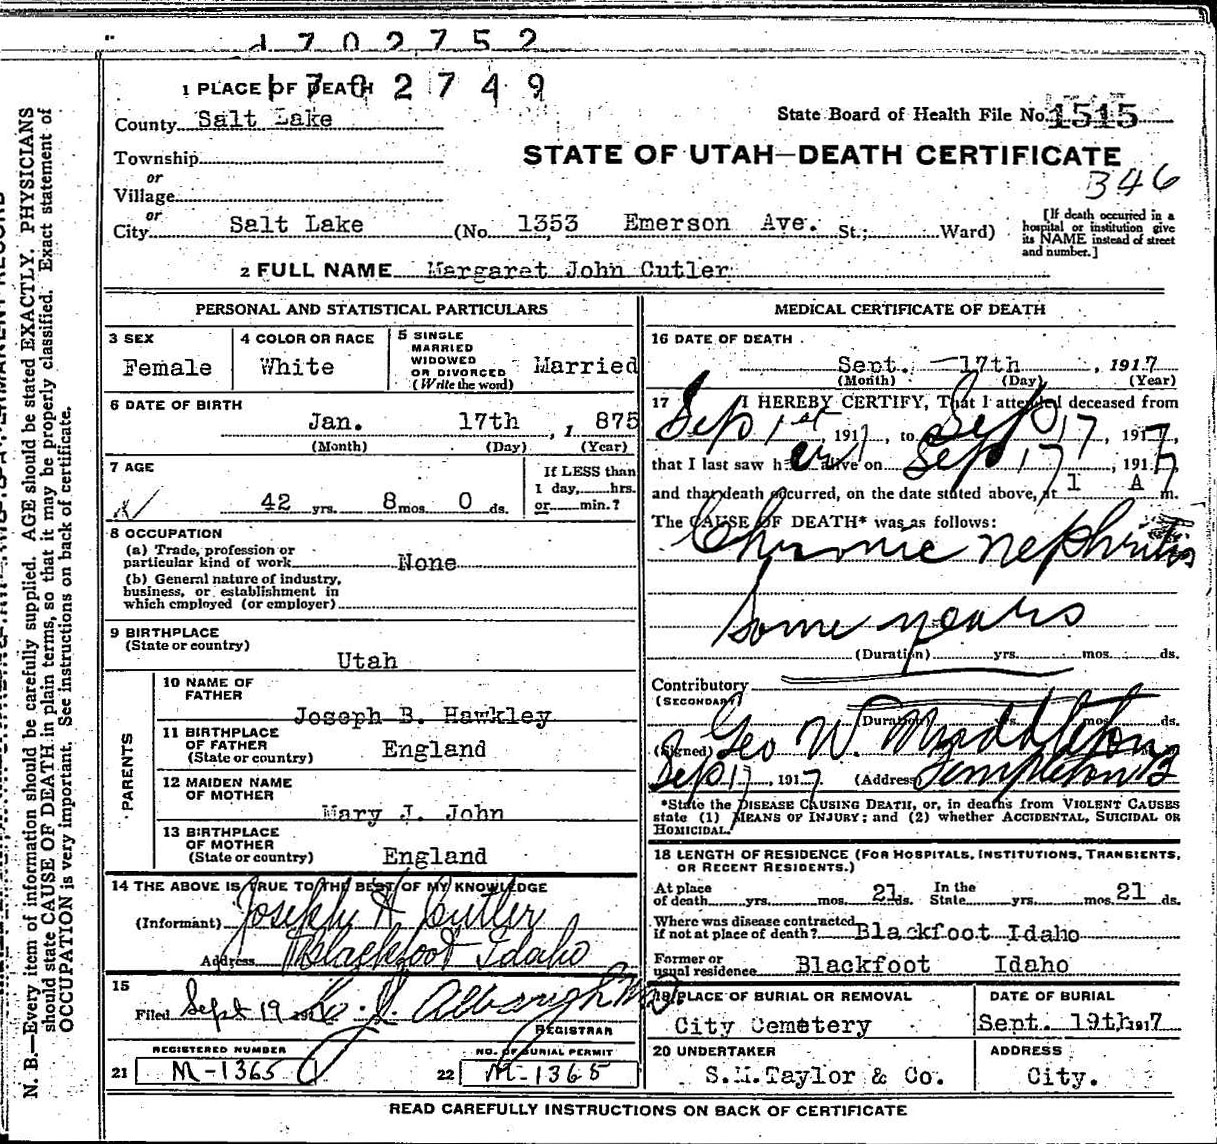 d702752
1702749
1 PLACE OF DEATH
County Salt Lake
State Board of Health File No. 1515
Township
or
Village
or
STATE OF UTAH—DEATH CERTIFICATE
346
City Salt Lake (No. 1353 Emerson Ave. St.; Ward)
[If death occurred in a hospital or institution give its NAME instead of street and number.]
2 FULL NAME Margaret John Cutler
PERSONAL AND STATISTICAL PARTICULARS
3 SEX
Female
4 COLOR OR RACE
White
5 SINGLE
MARRIED
WIDOWED
OR DIVORCED
(Write the word)
Married
6 DATE OF BIRTH
Jan. 17th, 1 875
(Month) (Day) (Year)
7 AGE
42 yrs. 8 mos. 0 ds.
If LESS than
1 day, hrs.
or min.?
8 OCCUPATION
(a) Trade, profession or
particular kind of work None
(b) General nature of industry,
business, or establishment in
which employed (or employer)
9 BIRTHPLACE
(State or country)
Utah
PARENTS
10 NAME OF
FATHER
Joseph B. Hawkley
11 BIRTHPLACE
OF FATHER
(State or country)
England
12 MAIDEN NAME
OF MOTHER
Mary J. John
13 BIRTHPLACE
OF MOTHER
(State or country)
England
14 THE ABOVE IS TRUE TO THE BEST OF MY KNOWLEDGE
(Informant) Joseph H Cutler
Address Blackfoot Idaho
15
Filed Sept 19
REGISTRAR
REGISTERED NUMBER
21 M-1365
NO. OF BURIAL PERMIT
22 M-1365
MEDICAL CERTIFICATE OF DEATH
16 DATE OF DEATH
Sept. 17th, 1917
(Month) (Day) (Year)
17 I HEREBY CERTIFY, That I attended deceased from
Sep 1st, 1917, to Sep 17, 1917,
that I last saw her alive on Sep 17, 1917,
and that death occurred, on the date stated above, at 1 A m.
The CAUSE OF DEATH* was as follows:
Chronic nephritis
Some years
(Duration) yrs. mos. ds.
Contributory
(SECONDARY)
(Duration) yrs. mos. ds.
(Signed) Geo W. Middleton
Sep 17, 1917 (Address) Templeton B
*State the DISEASE CAUSING DEATH, or, in deaths from VIOLENT CAUSES
state (1) MEANS OF INJURY; and (2) whether ACCIDENTAL, SUICIDAL OR
HOMICIDAL.
18 LENGTH OF RESIDENCE (FOR HOSPITALS, INSTITUTIONS, TRANSIENTS,
OR RECENT RESIDENTS.)
At place
of death yrs. mos. 21 ds.
In the
State yrs. mos. 21 ds.
Where was disease contracted
if not at place of death? Blackfoot Idaho
Former or
usual residence Blackfoot Idaho
19 PLACE OF BURIAL OR REMOVAL
City Cemetery
DATE OF BURIAL
Sept. 19th 1917
20 UNDERTAKER
S.M. Taylor & Co.
ADDRESS
City.
READ CAREFULLY INSTRUCTIONS ON BACK OF CERTIFICATE
N. B.—Every item of information should be carefully supplied. AGE should be stated EXACTLY. PHYSICIANS
should state CAUSE OF DEATH in plain terms, so that it may be properly classified. Exact statement of
OCCUPATION is very important. See instructions on back of certificate.